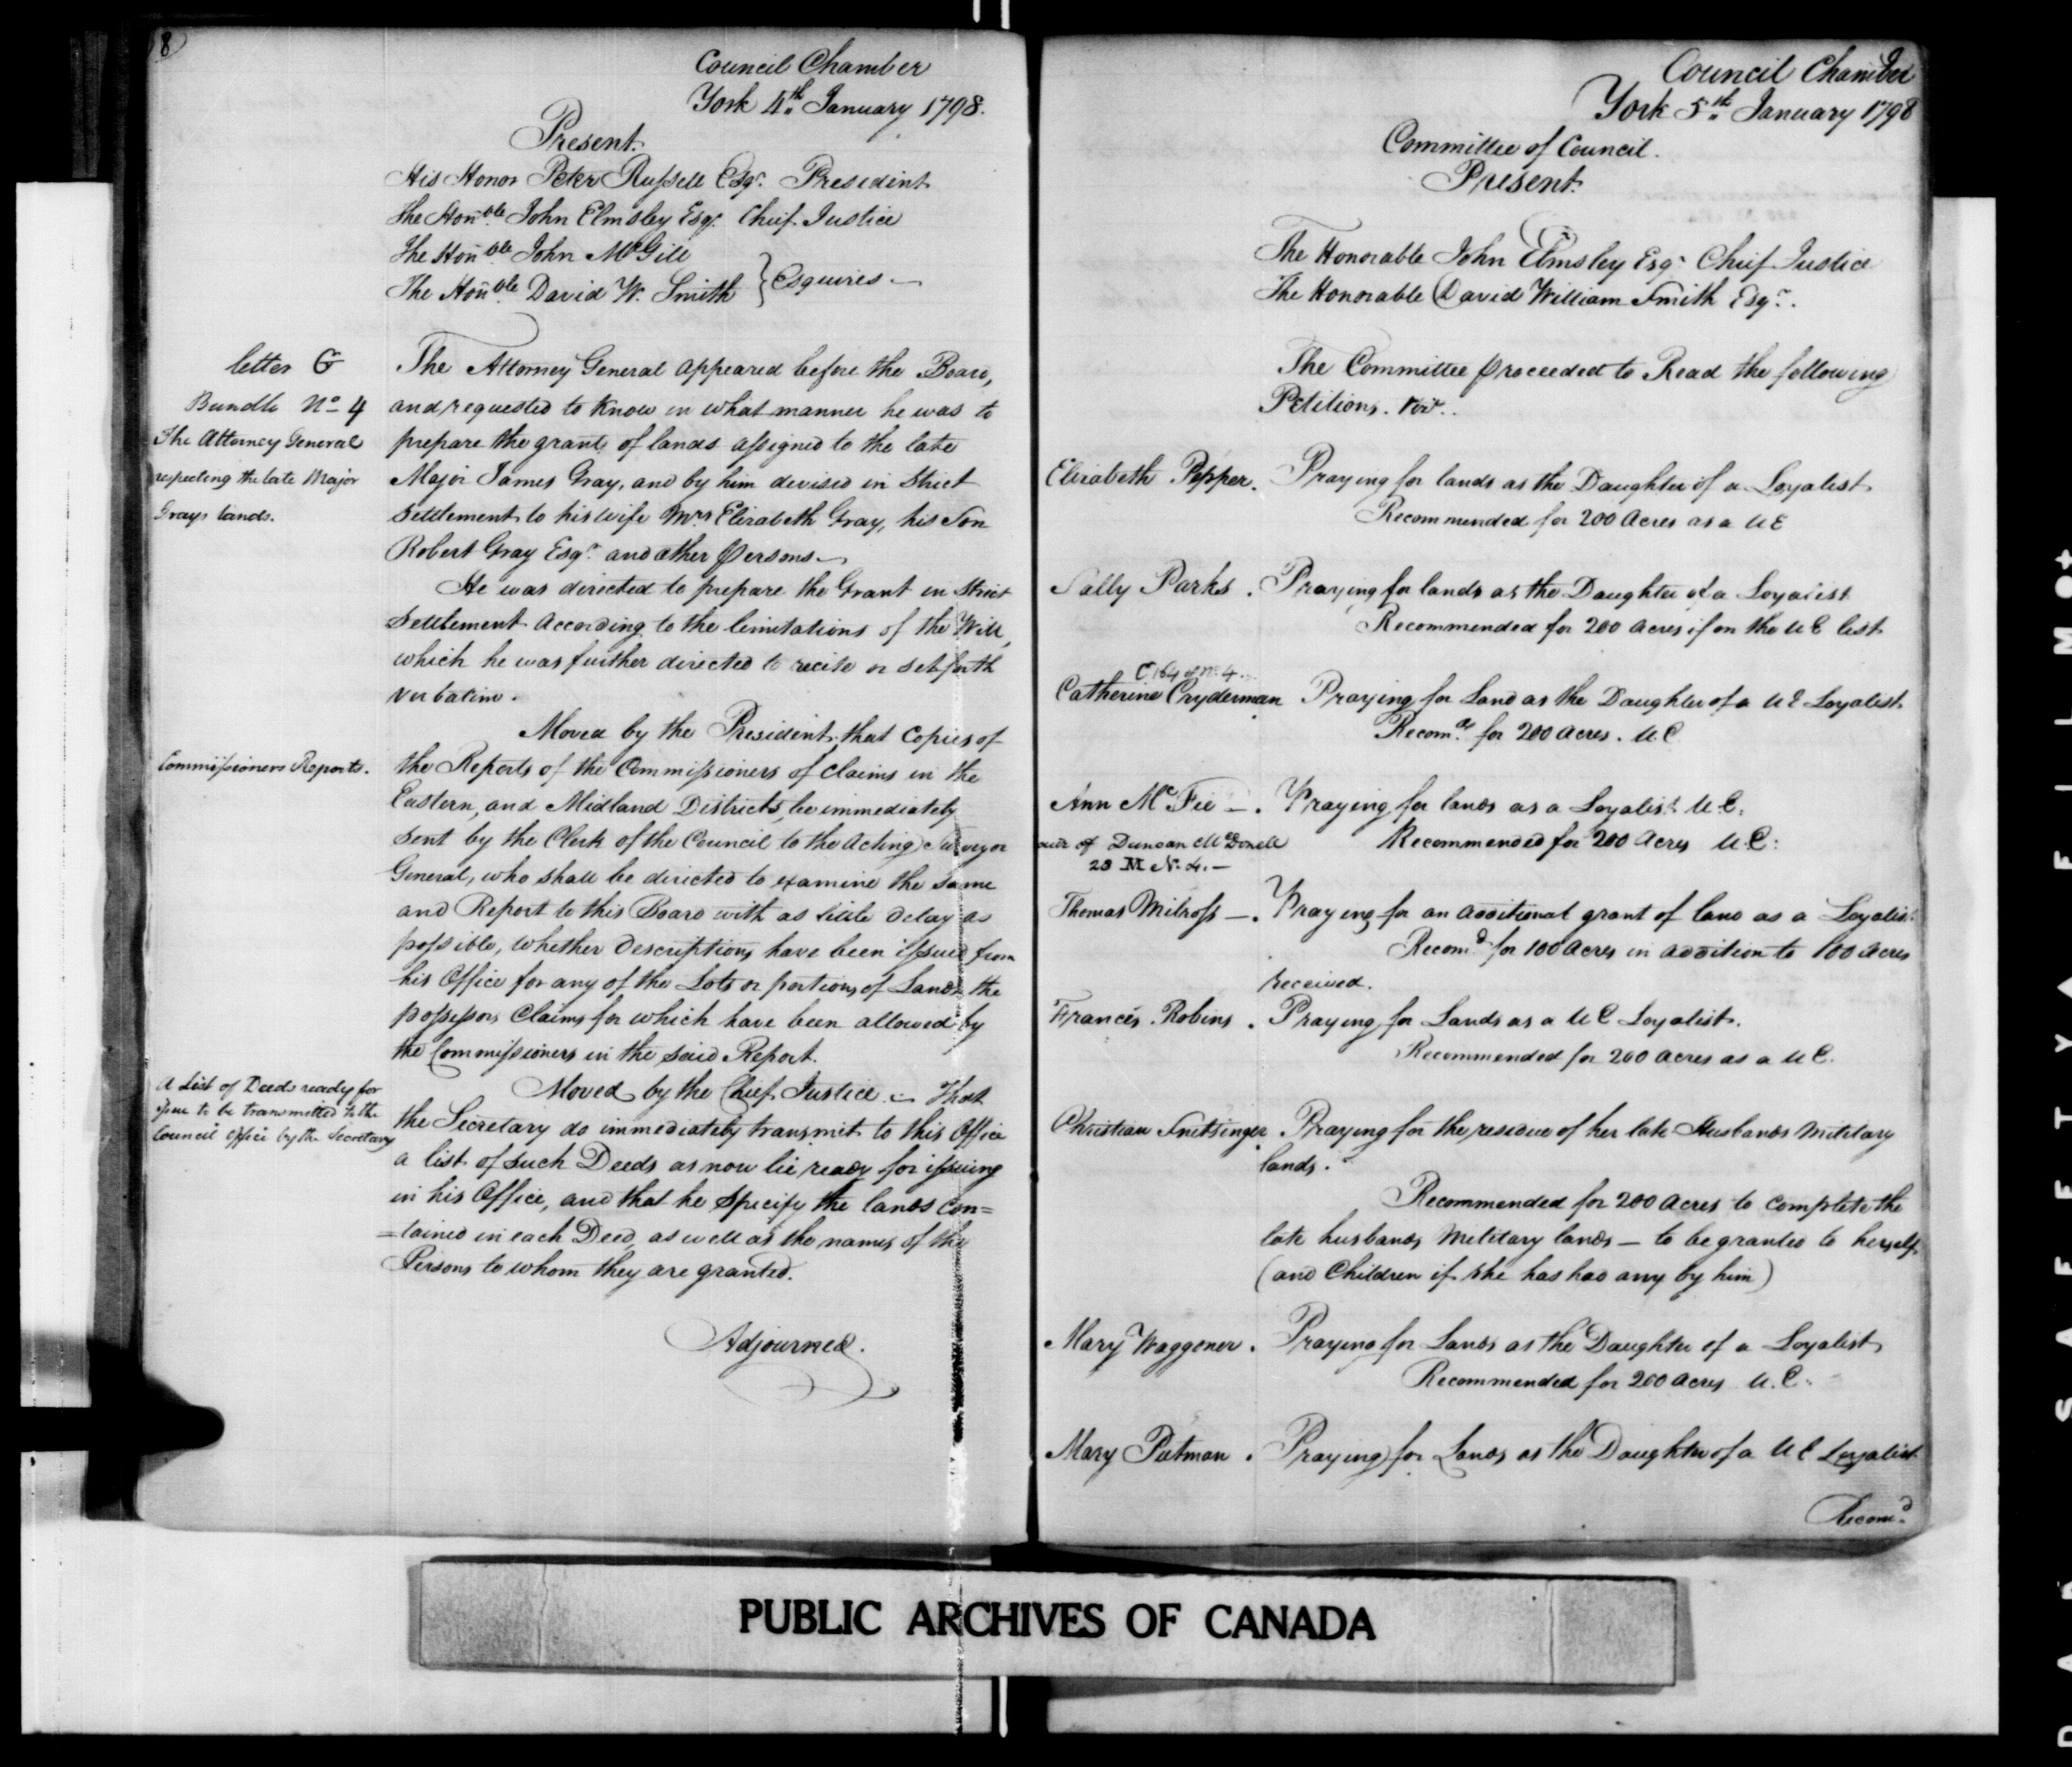 8
Council Chamber
York 4th January 1798.
Present.
His Honor Peter Russell Esqr. President
The Honble. John Elmsley Esqr. Chief Justice
The Honble. John McGill
The Honble. David W. Smith } Esquires —
letter G
Bundle No. 4
The Attorney General
respecting the late Major
Grays lands.
The Attorney General appeared before the Board,
and requested to know in what manner he was to
prepare the grants of lands assigned to the late
Major James Gray, and by him devised in Strict
Settlement to his wife Mrs Elizabeth Gray, his Son
Robert Gray Esqr. and other persons —
He was directed to prepare the Grant in Strict
Settlement According to the limitations of the Will,
which he was further directed to recite or set forth
verbatim.
Commissioners Reports.
Moved by the President, that Copies of
the Reports of the Commissioners of Claims in the
Eastern, and Midland Districts, be immediately
sent by the Clerk of the Council to the Acting Surveyor
General, who shall be directed to examine the same
and Report to this Board with as little delay as
possible, whether descriptions have been issued from
his Office for any of the Lots or portions of Lands the
possessors Claims for which have been allowed by
the Commissioners in the said Report.
A List of Deeds ready for
issue to be transmitted to the
Council Office by the Secretary
Moved by the Chief Justice — That
the Secretary do immediately transmit to this Office
a list of such Deeds as now lie ready for issuing
in his Office, and that he specify the lands con=
=tained in each Deed, as well as the names of the
Persons to whom they are granted.
Adjourned.
Council Chamber
York 5th January 1798
Committee of Council.
Present.
The Honorable John Elmsley Esqr. Chief Justice
The Honorable David William Smith Esqr.
The Committee proceeded to Read the following
Petitions. vizt.
Elizabeth Pepper. Praying for lands as the Daughter of a Loyalist
Recommended for 200 Acres as a U E
Sally Parks. Praying for lands as the Daughter of a Loyalist
Recommended for 200 acres if on the U E list
C 164 of No. 4.
Catherine Cryderman Praying for Land as the Daughter of a U E Loyalist
Recomd. for 200 acres. U. E
Ann McFie —. Praying for lands as a Loyalist U. E.
Recommended for 200 Acres U. E.
of Duncan McDonell
23 M No. 4. —
Thomas Milross —. Praying for an additional grant of land as a Loyalist
Recomd. for 100 Acres in addition to 100 acres
received.
Frances Robins. Praying for Lands as a U E Loyalist.
Recommended for 200 acres as a U E.
Christian Snitsinger. Praying for the residue of her late Husbands Military
lands.
Recommended for 200 acres to complete the
late husbands Military lands — to be granted to herself
(and Children if she has had any by him)
Mary Waggoner. Praying for Lands as the Daughter of a Loyalist
Recommended for 200 acres U. E.
Mary Putman. Praying for Lands as the Daughter of a U E Loyalist
Recomd.
PUBLIC ARCHIVES OF CANADA